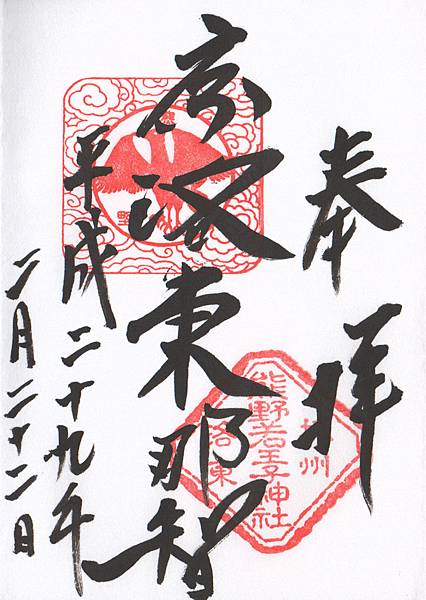 奉拝
京洛東那智
平成二十九年
二月二十二日
熊野
熊野若王子神社
洛東